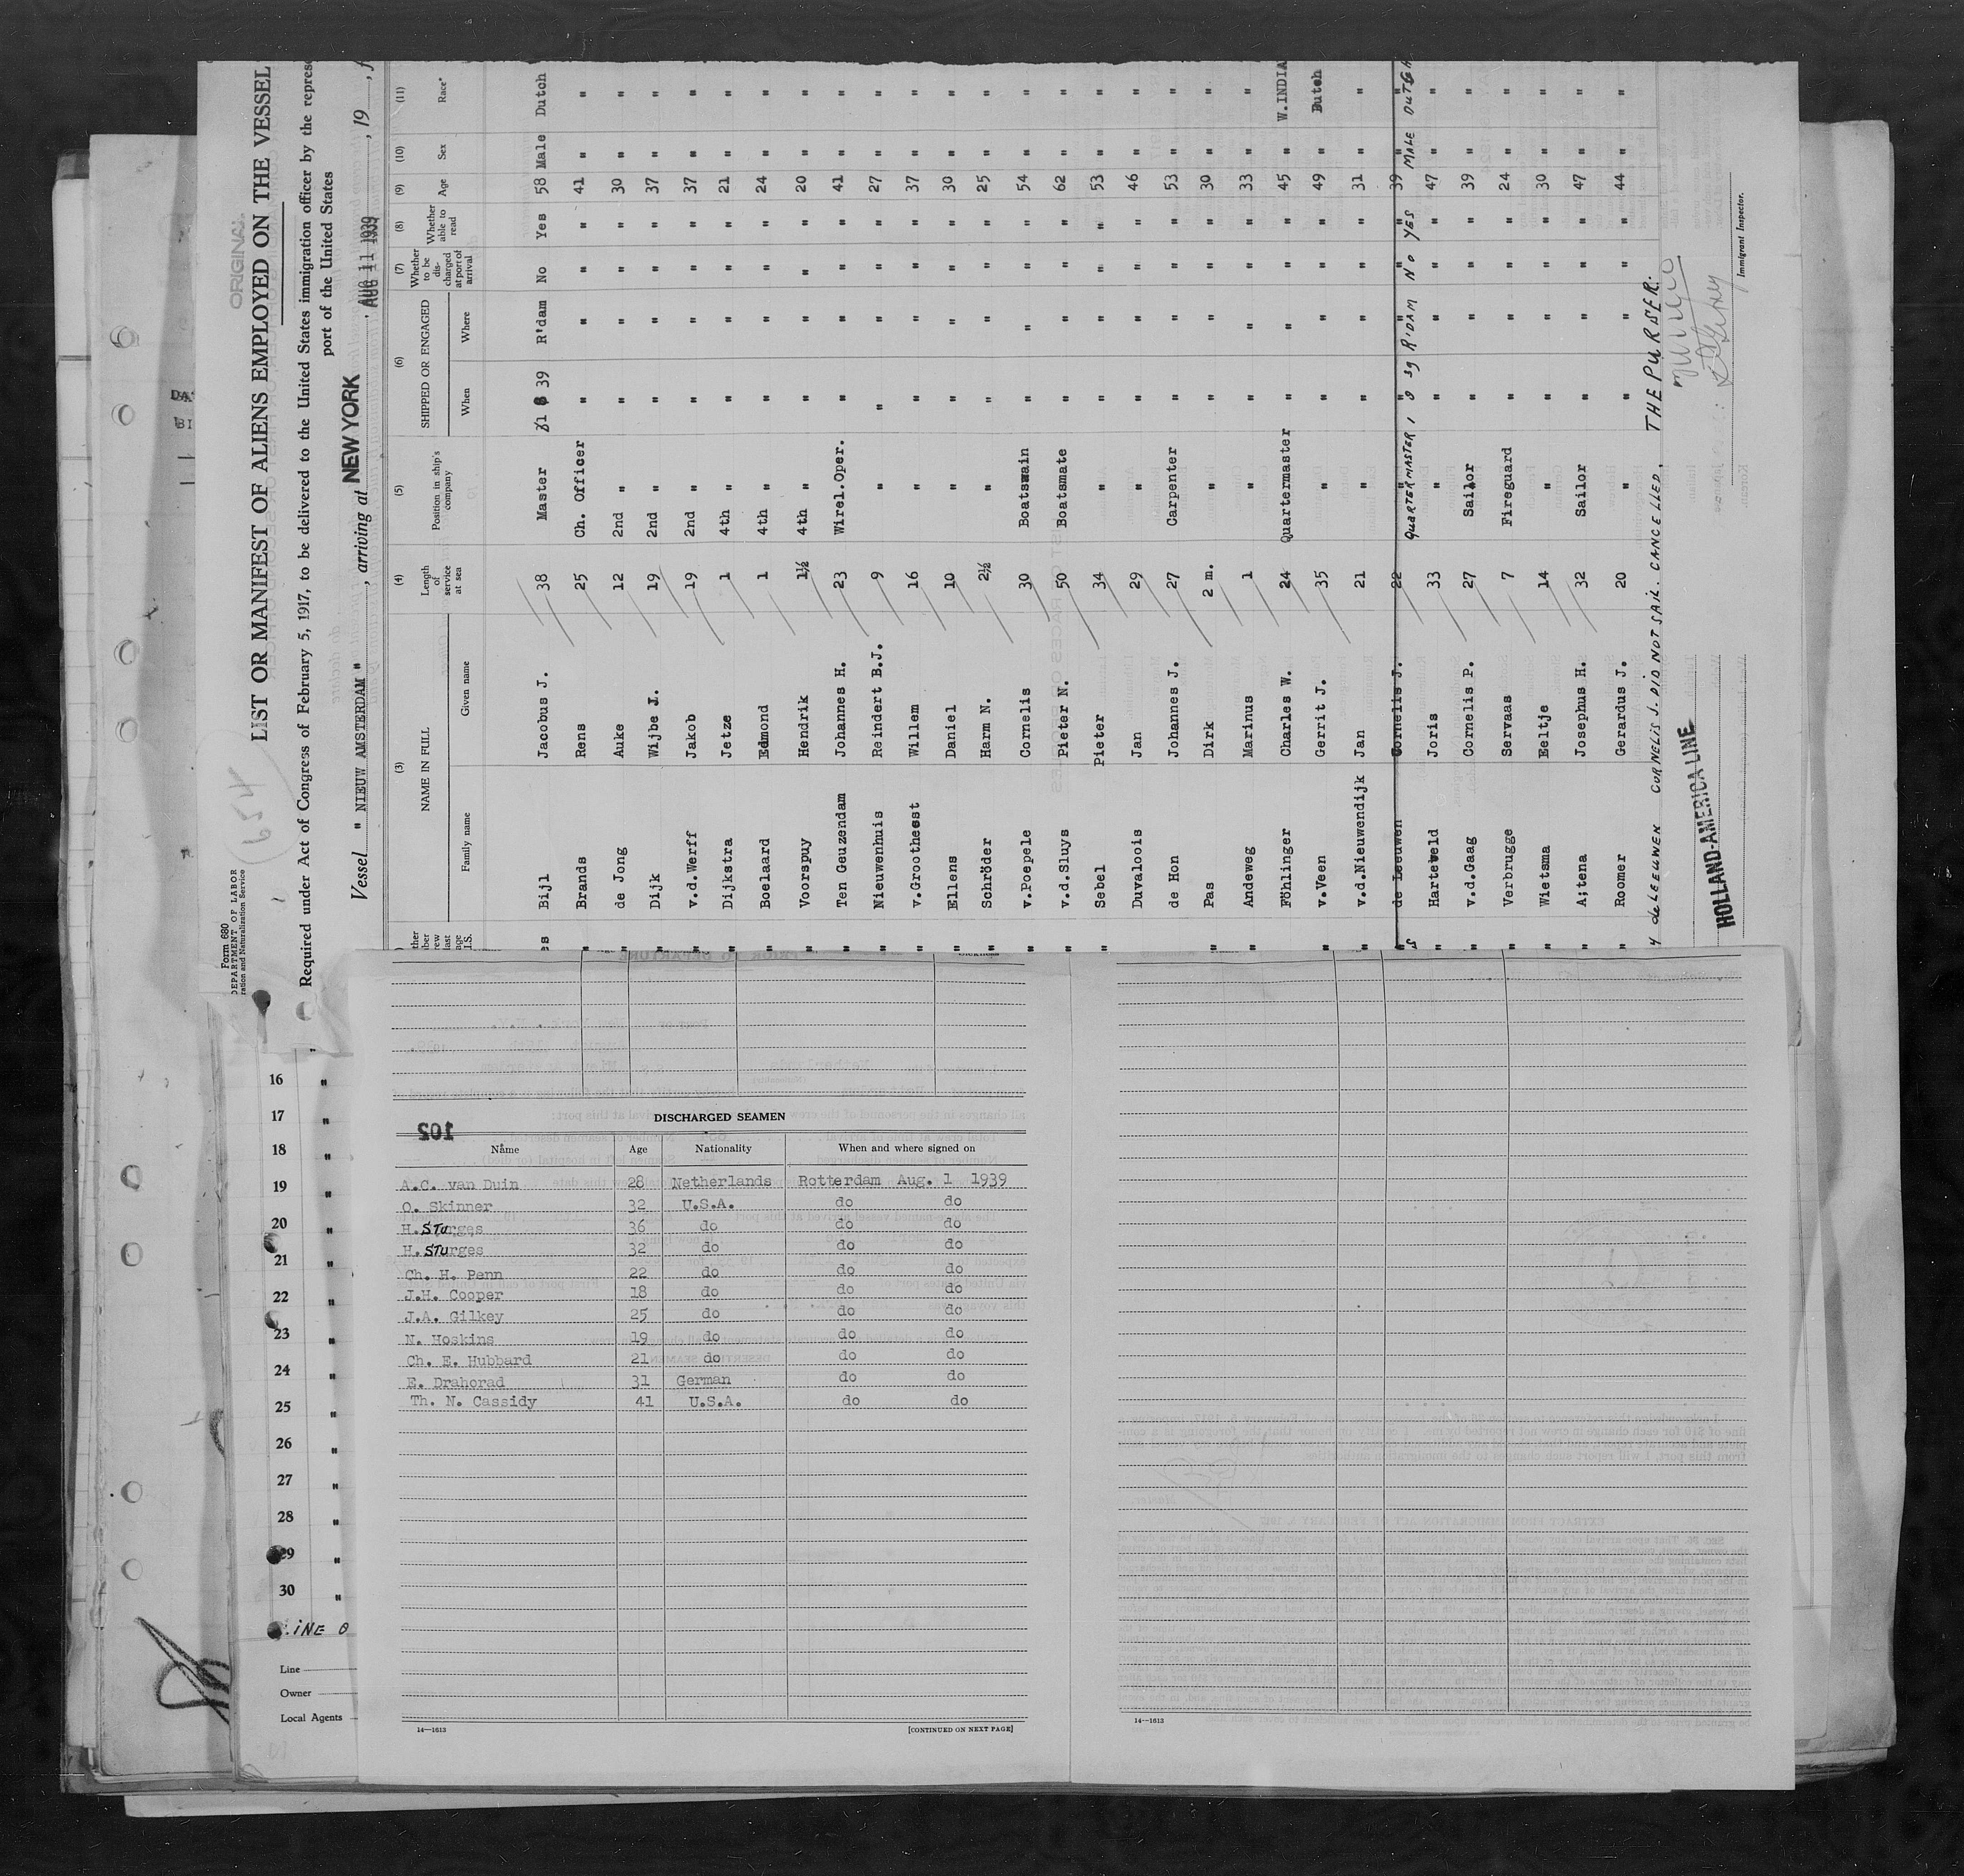 ORIGINAL
Form 680
DEPARTMENT OF LABOR
ration and Naturalization Service
LIST OR MANIFEST OF ALIENS EMPLOYED ON THE VESSEL
Required under Act of Congress of February 5, 1917, to be delivered to the United States immigration officer by the represe
port of the United States
Vessel " NIEUW AMSTERDAM " , arriving at NEW YORK , AUG 11 1939 , 19 , f
(3) (4) (5) (6) (7) (8) (9) (10) (11)
NAME IN FULL Length of service at sea Position in ship's company SHIPPED OR ENGAGED Whether to be discharged at port of arrival Whether able to read Age Sex Race*
Family name Given name When Where
es Bijl Jacobus J. 38 Master 39 R'dam No Yes 58 Male Dutch
" Brands Rens 25 Ch. Officer " " " " 41 " "
" de Jong Auke 12 2nd " " " " " 30 " "
" Dijk Wijbe J. 19 2nd " " " " " 37 " "
" v.d.Werff Jakob 19 2nd " " " " " 37 " "
" Dijkstra Jetze 1 4th " " " " " 21 " "
" Boelaard Edmond 1 4th " " " " " 24 " "
" Voorspuy Hendrik 1½ 4th " " " " " 20 " "
" Ten Geuzendam Johannes H. 23 Wirel.Oper. " " " " 41 " "
" Nieuwenhuis Reindert B.J. 9 " " " " " 27 " "
" v.Grootheest Willem 16 " " " " " 37 " "
" Ellens Daniel 10 " " " " " 30 " "
" Schröder Harm N. 2½ " " " " " 25 " "
" v.Poepele Cornelis 30 Boatswain " " " " 54 " "
" v.d.Sluys Pieter N. 50 Boatsmate " " " " 62 " "
" Sebel Pieter 34 " " " " " 53 " "
Duvalois Jan 29 " " " " " 46 " "
de Hon Johannes J. 27 Carpenter " " " " 53 " "
" Pas Dirk 2 m. " " " " " 30 " "
" Andeweg Marinus 1 " " " " " 33 " "
Föhlinger Charles W. 24 Quartermaster " " " " 45 " W.INDIA
" v.Veen Gerrit J. 35 " " " " " 49 " Dutch
" v.d.Nieuwendijk Jan 21 " " " " " 31 " "
" de Leeuwen Cornelis J. 22 " " " " " 39 " "
" Harteveld Joris 33 QUARTERMASTER 1 8 39 R'DAM NO YES 47 MALE DUTCH
" v.d.Gaag Cornelis P. 27 Sailor " " " " 39 " "
" Verbrugge Servaas 7 Fireguard " " " " 24 " "
" Wietsma Eeltje 14 " " " " " 30 " "
" A;tena Josephus H. 32 Sailor " " " " 47 " "
" Roomer Gerardus J. 20 " " " " " 44 " "
4 de LEEUWEN CORNELIS J. DID NOT SAIL. CANCELLED. THE PURSER.
HOLLAND-AMERICA LINE
Immigrant Inspector.
16 "
17 "
18 "
19 "
20 "
21 "
22 "
23 "
24 "
25 "
26 "
27 "
28 "
29 "
30 "
LINE 8
Line
Owner
Local Agents
DISCHARGED SEAMEN
102
Name Age Nationality When and where signed on
A.C. van Duin 28 Netherlands Rotterdam Aug. 1 1939
O. Skinner 32 U.S.A. do do
H. STurges 36 do do do
H. STurges 32 do do do
Ch. H. Penn 22 do do do
J.H. Cooper 18 do do do
J.A. Gilkey 25 do do do
N. Hoskins 19 do do do
Ch. E. Hubbard 21 do do do
E. Drahorad 31 German do do
Th. N. Cassidy 41 U.S.A. do do
14—1613 [CONTINUED ON NEXT PAGE]
14—1613